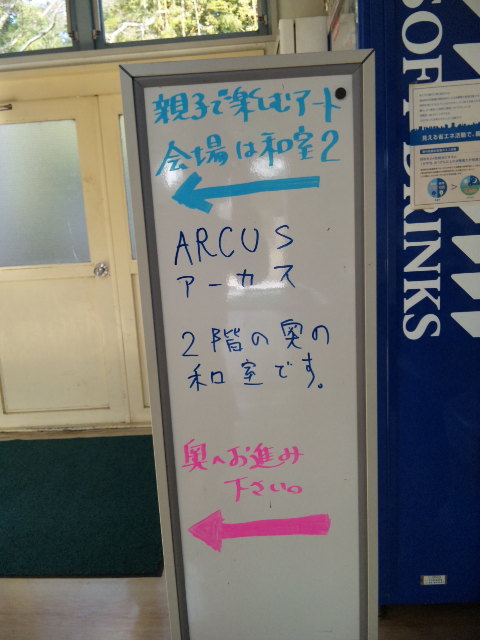 親子で楽しむアート
会場は和室2
ARCUS
アーカス
2階の奥の
和室です。
奥へお進み
下さい。
SOFT DRINKS
見える省エネ活動で、